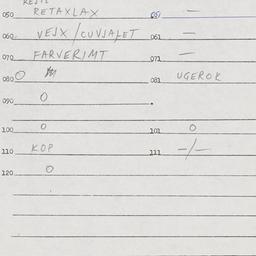 050 RETAXLAX 051 —
060 VEJX/CUVSALET 061 —
070 FARVERIMT 071 —
080 O 081 UGEROK
090 O
100 O 101 O
110 KOP 111 -/-
120 O